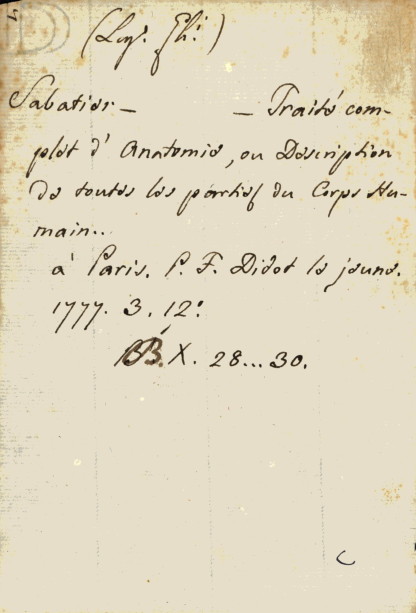 Sabatier — — Traité com-
plet d' Anatomie, ou Description
de toutes les parties du Corps Hu-
main..
à Paris. P. F. Didot le jeune.
1777. 3. 12:
BB. X. 28... 30.